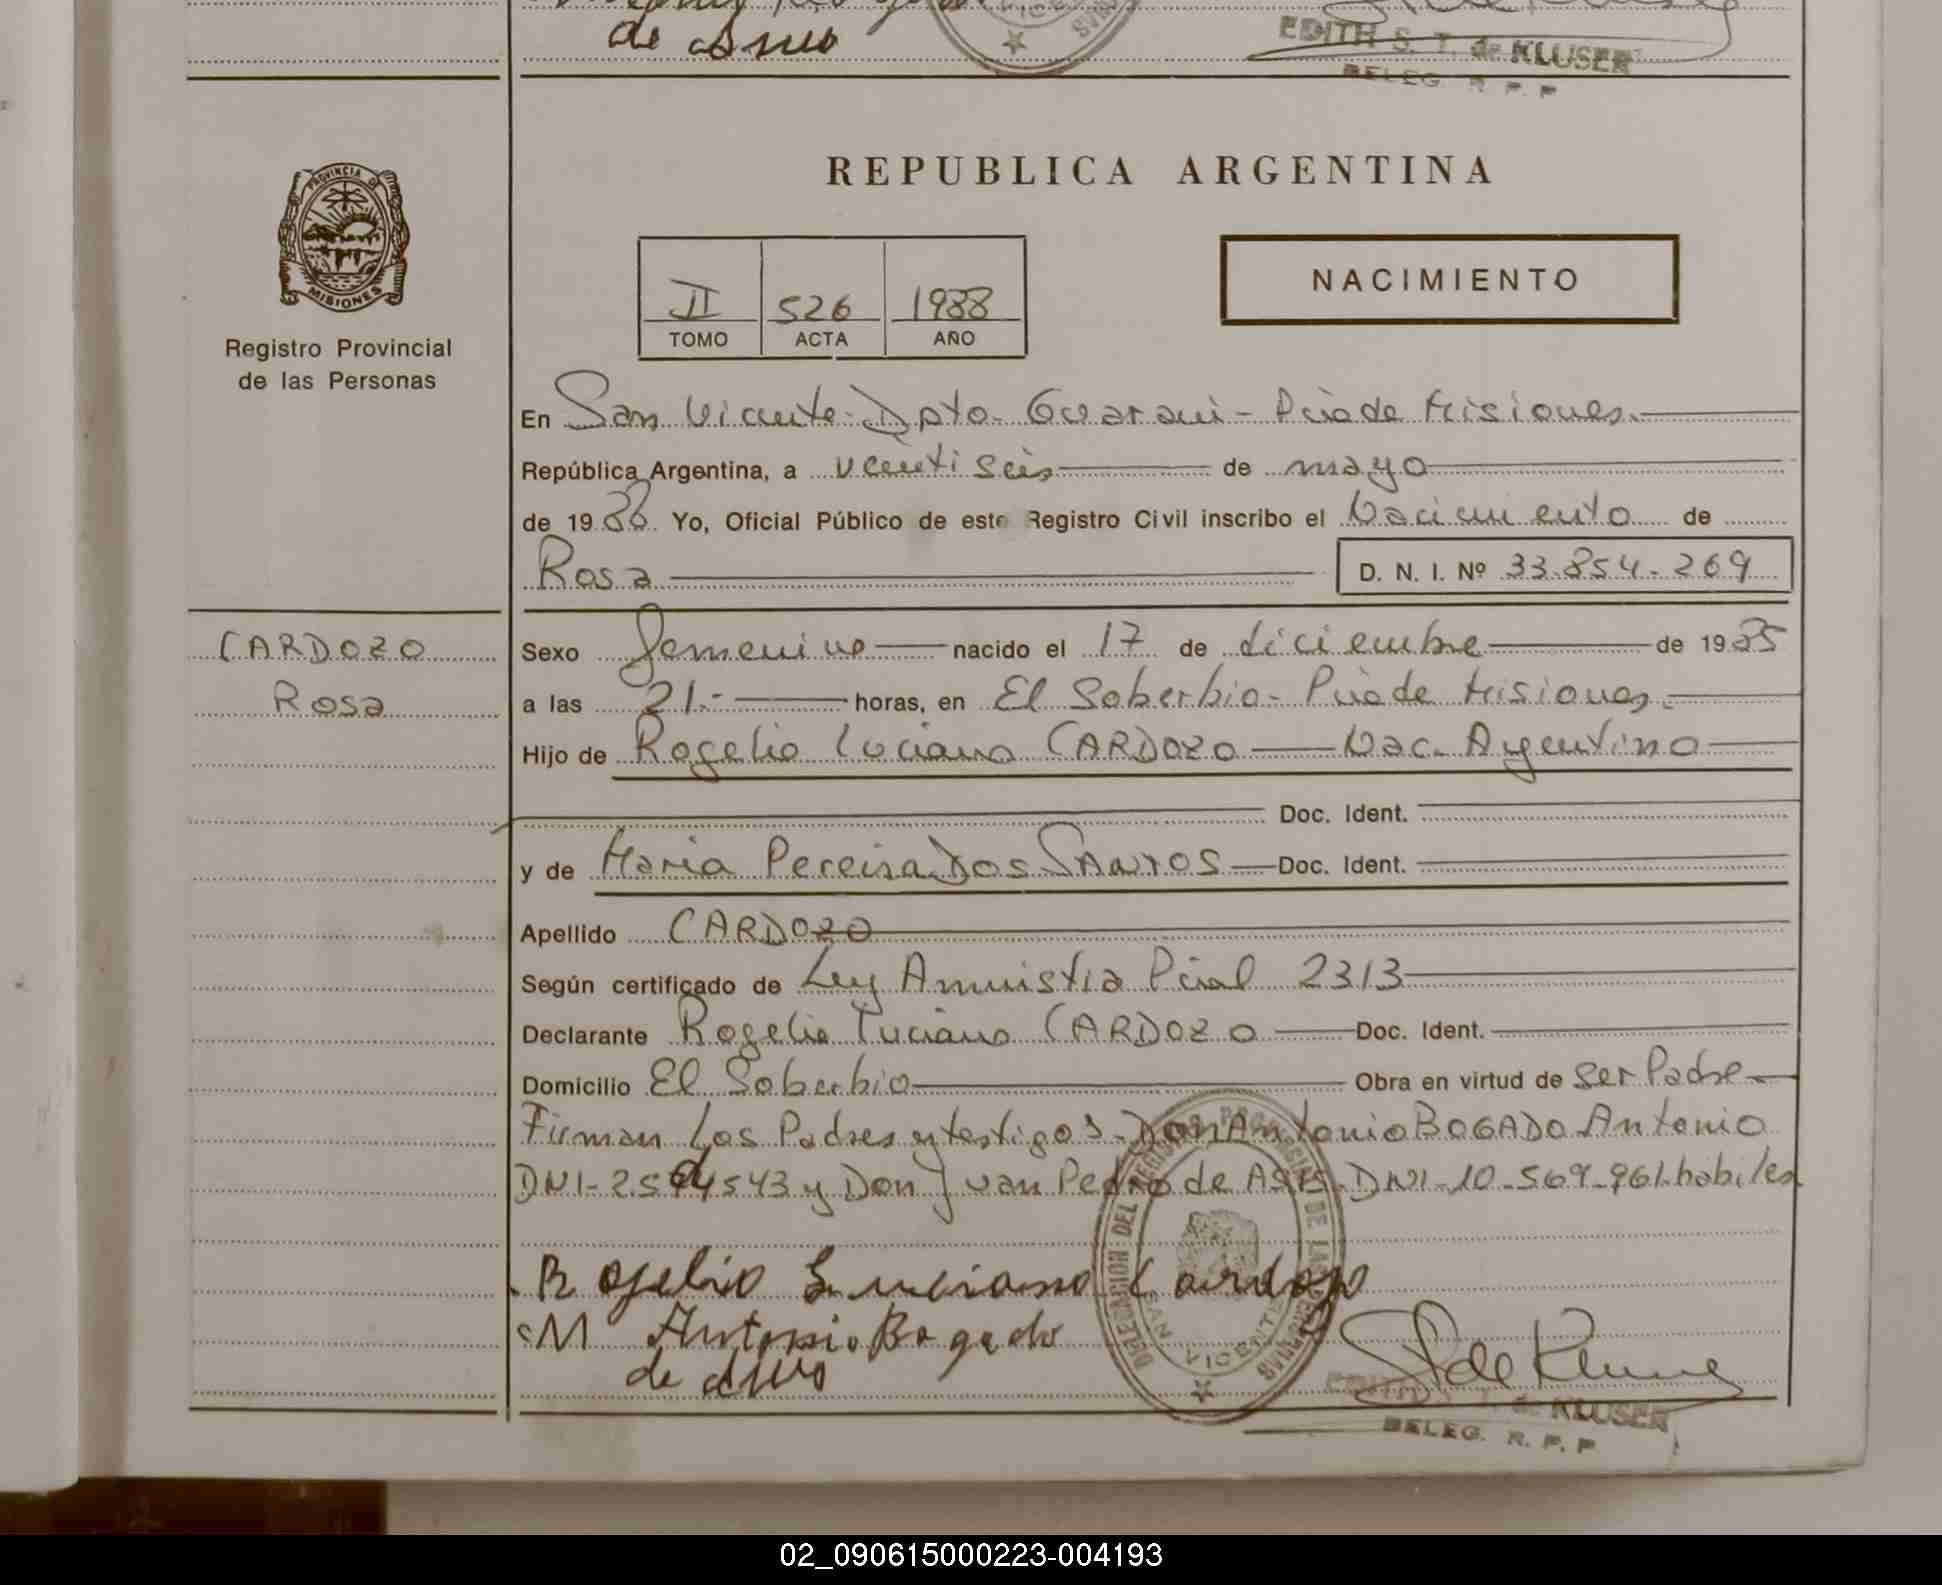 de Asis
EDITH S. T. de KLUSER
DELEG. R. P. P
PROVINCIA DE
MISIONES
Registro Provincial
de las Personas
REPUBLICA ARGENTINA
II 526 1988
TOMO ACTA AÑO
NACIMIENTO
En San Vicente - Dpto - Guarani - Pcia de Misiones
República Argentina, a veinti seis de mayo
de 1988 Yo, Oficial Público de este Registro Civil inscribo el Nacimiento de
Rosa D. N. I. Nº 33.854.269
CARDOZO
Rosa
Sexo femenino nacido el 17 de diciembre de 1985
a las 21.- horas, en El Soberbio - Pcia de Misiones
Hijo de Rogelio Luciano CARDOZO Nac. Argentino
Doc. Ident.
y de Maria Pereira DOS SANTOS Doc. Ident.
Apellido CARDOZO
Según certificado de Ley Amnistia Pcial 2313
Declarante Rogelio Luciano CARDOZO Doc. Ident.
Domicilio El Soberbio Obra en virtud de ser Padre
Firman los Padres y testigos - Don Antonio BOGADO Antonio
DNI - y Don Juan Pedro de ASIS - DNI - 10.569.961 habiles
Rogelio Luciano Cardozo
M Antonio Bogado
de Asis
DELEGACION DEL REGISTRO PROVINCIAL DE LAS PERSONAS
SAN VICENTE
EDITH S. T. de KLUSER
DELEG. R. P. P
02_090615000223-004193